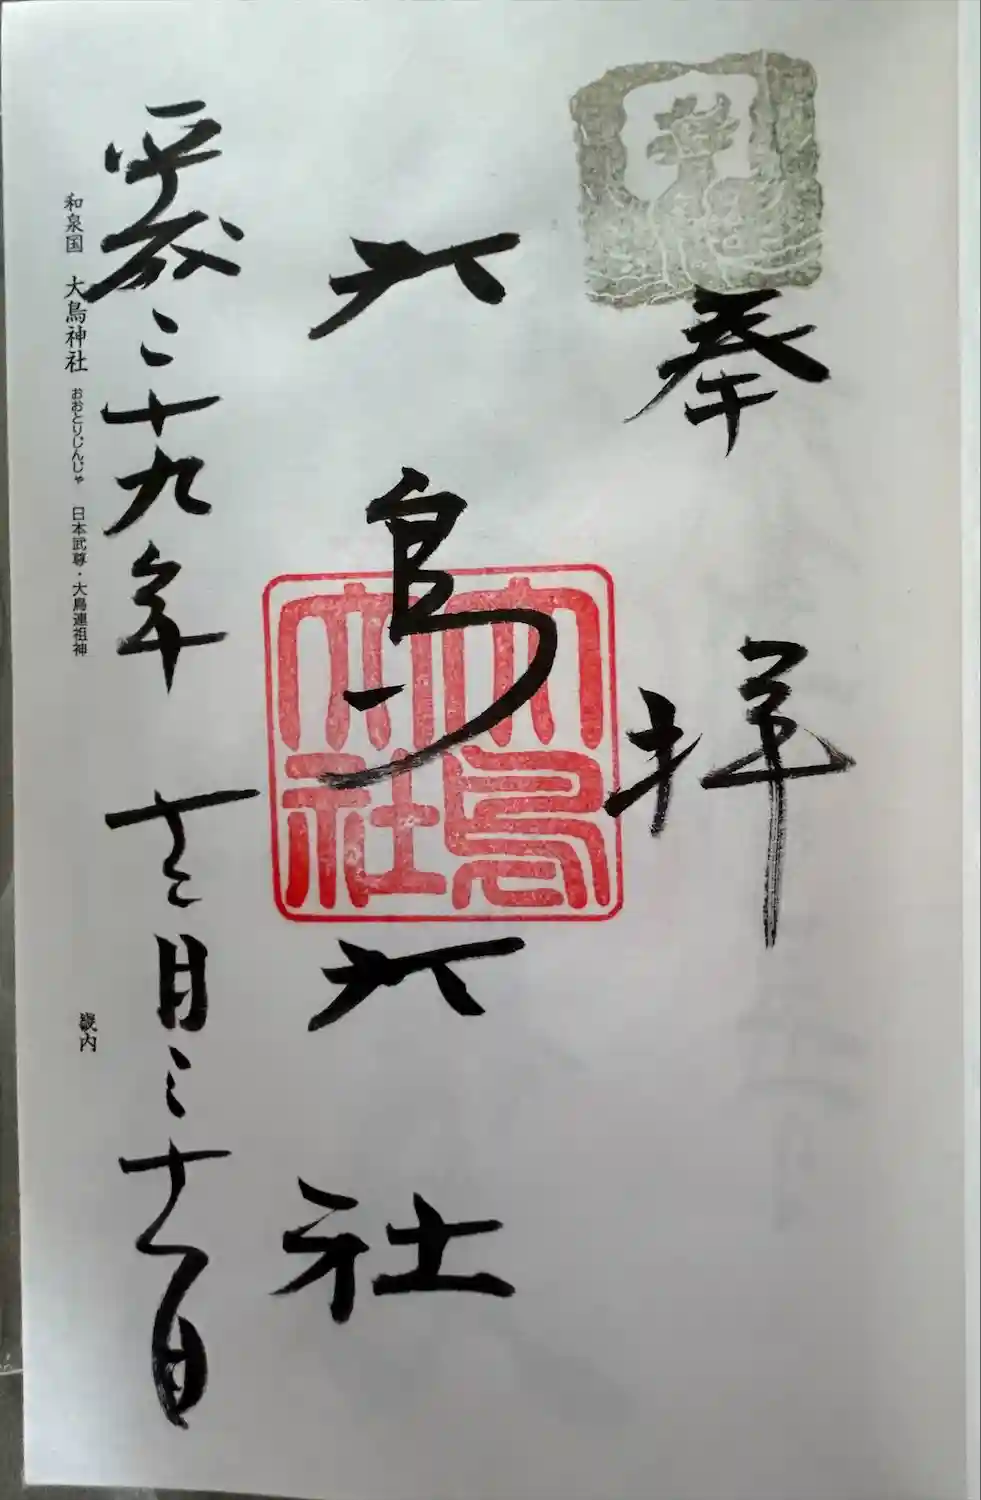 奉拝
大鳥大社
大鳥大社
平成二十九年十二月二十八日
和泉国 大鳥神社 おおとりじんじゃ 日本武尊・大鳥連祖神
畿内